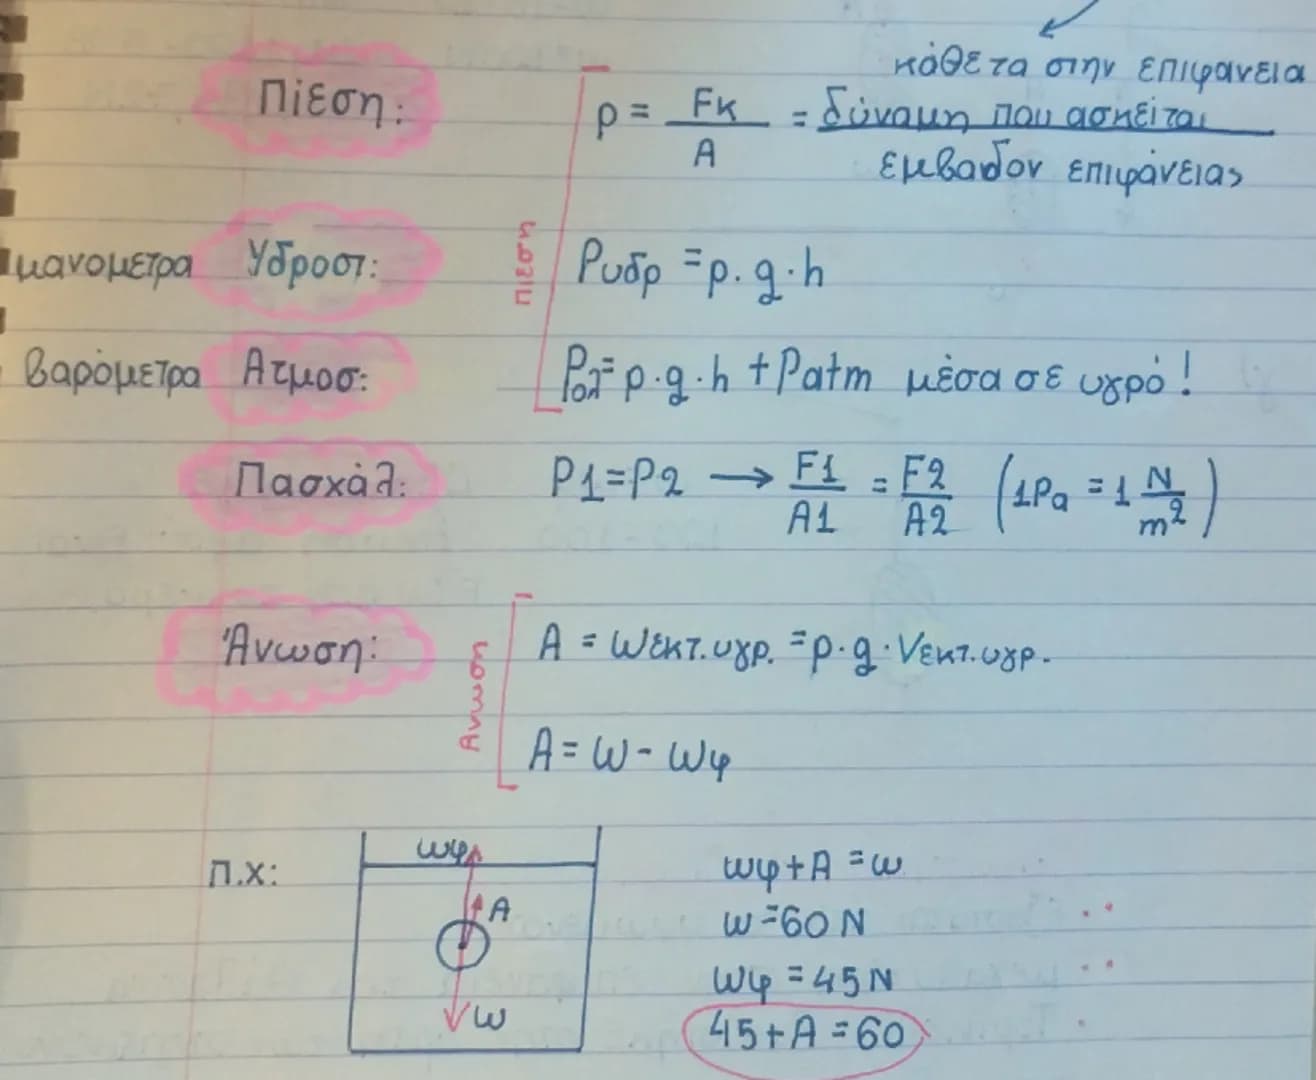 κάθετα στην επιφάνεια
Πίεση: p = Fκ / A = δύναμη που ασκείται / εμβαδόν επιφάνειας
πιεση
μανομετρα Υδροστ: Pυδρ = p·g·h
βαρόμετρα Ατμοσ: Pολ = p·g·h + Patm μέσα σε υγρό!
Πασχάλ: P1=P2 → F1/A1 = F2/A2 (1Pa = 1 N/m²)
Άνωση: A = Wεκτ.υγρ. = p·g·Vεκτ.υγρ.
Ανωση
A = W - Wφ
π.χ:
Wφ
A
W
Wφ+A = W
W=60N
Wφ = 45N
45+A = 60